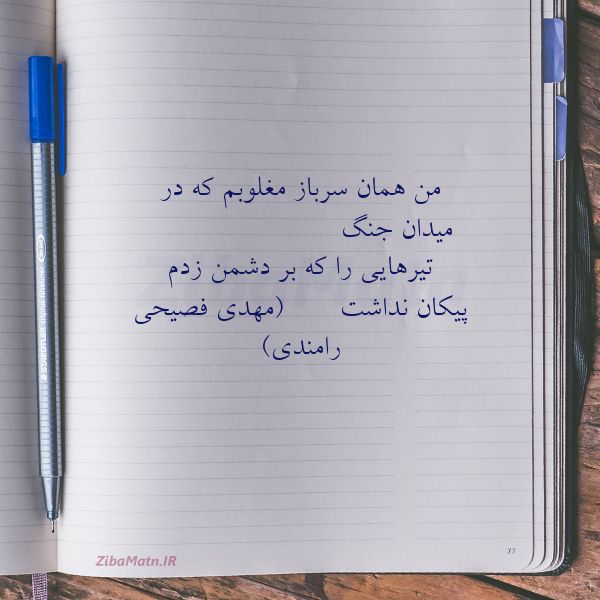 من همان سرباز مغلوبم که در
میدان جنگ
تیرهایی را که بر دشمن زدم
پیکان نداشت (مهدی فصیحی
رامندی)
77
ZibaMatn.IR